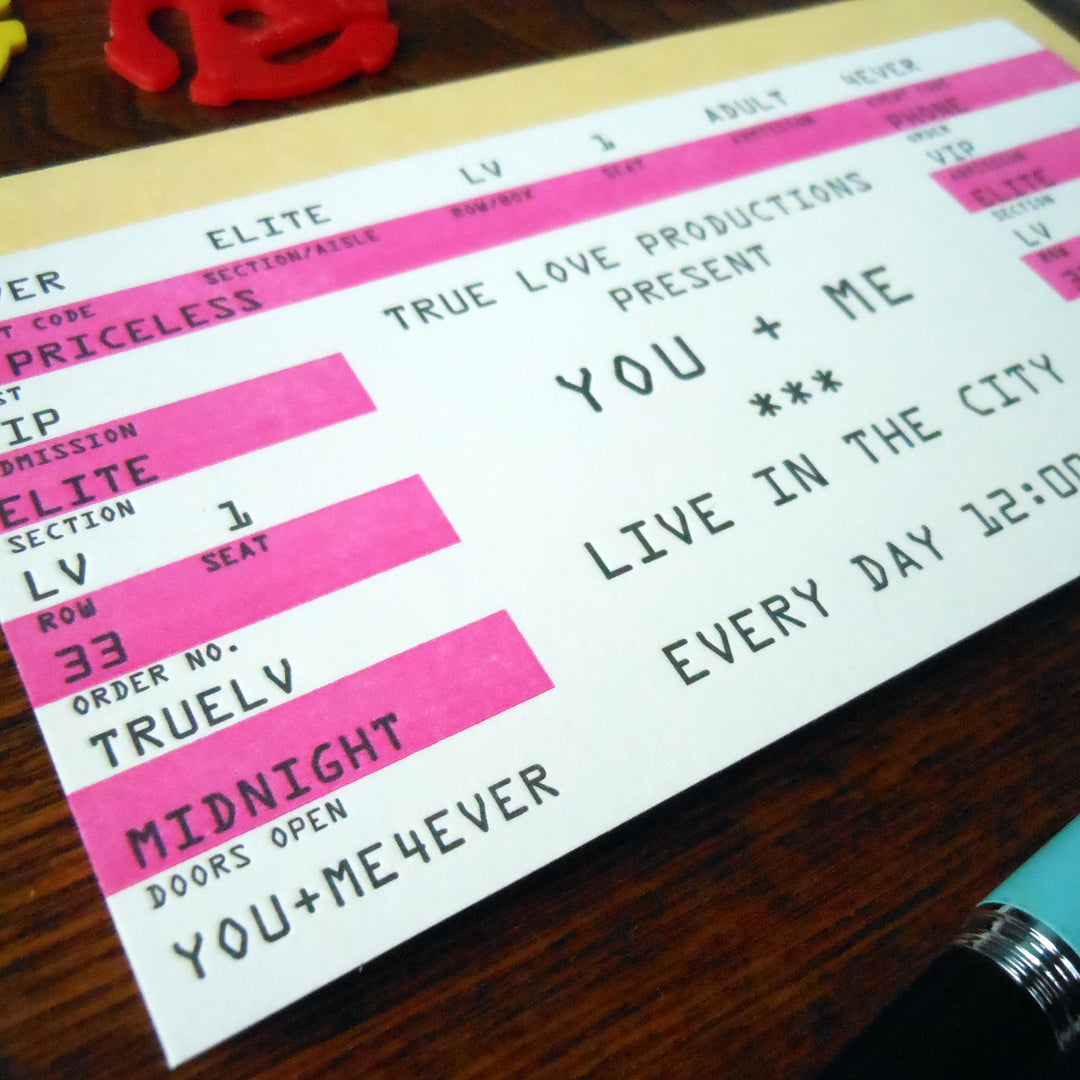 ELITE LV 1 ADULT 4EVER
SECTION/AISLE ROW/BOX SEAT ADMISSION EVENT CODE
PRICELESS
VIP
ADMISSION
ELITE
SECTION 1
LV SEAT
ROW
33
ORDER NO.
TRUELV
MIDNIGHT
DOORS OPEN
YOU+ME4EVER
TRUE LOVE PRODUCTIONS
PRESENT
YOU + ME
***
LIVE IN THE CITY
EVERY DAY 12:00
PHONE
ORDER
VIP
ADMISSION
ELITE
SECTION
LV
ROW